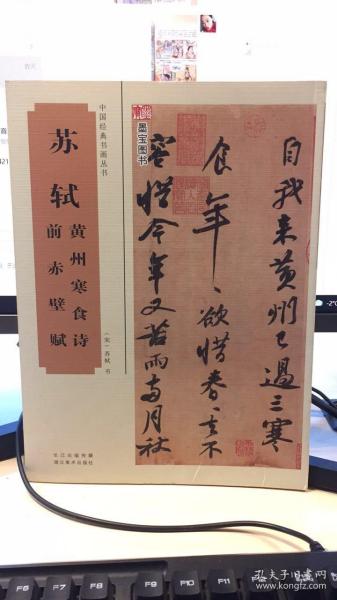 中国经典书画丛书
苏轼
黄州寒食诗
前赤壁赋
（宋）苏轼 书
长江出版传媒
湖北美术出版社
墨宝图书
自我来黄州已过三寒
食年〻欲惜春〻去不
容惜今年又苦雨两月秋
F7
F8
F9
F10
F11
孔夫子旧书网
kongfz.com